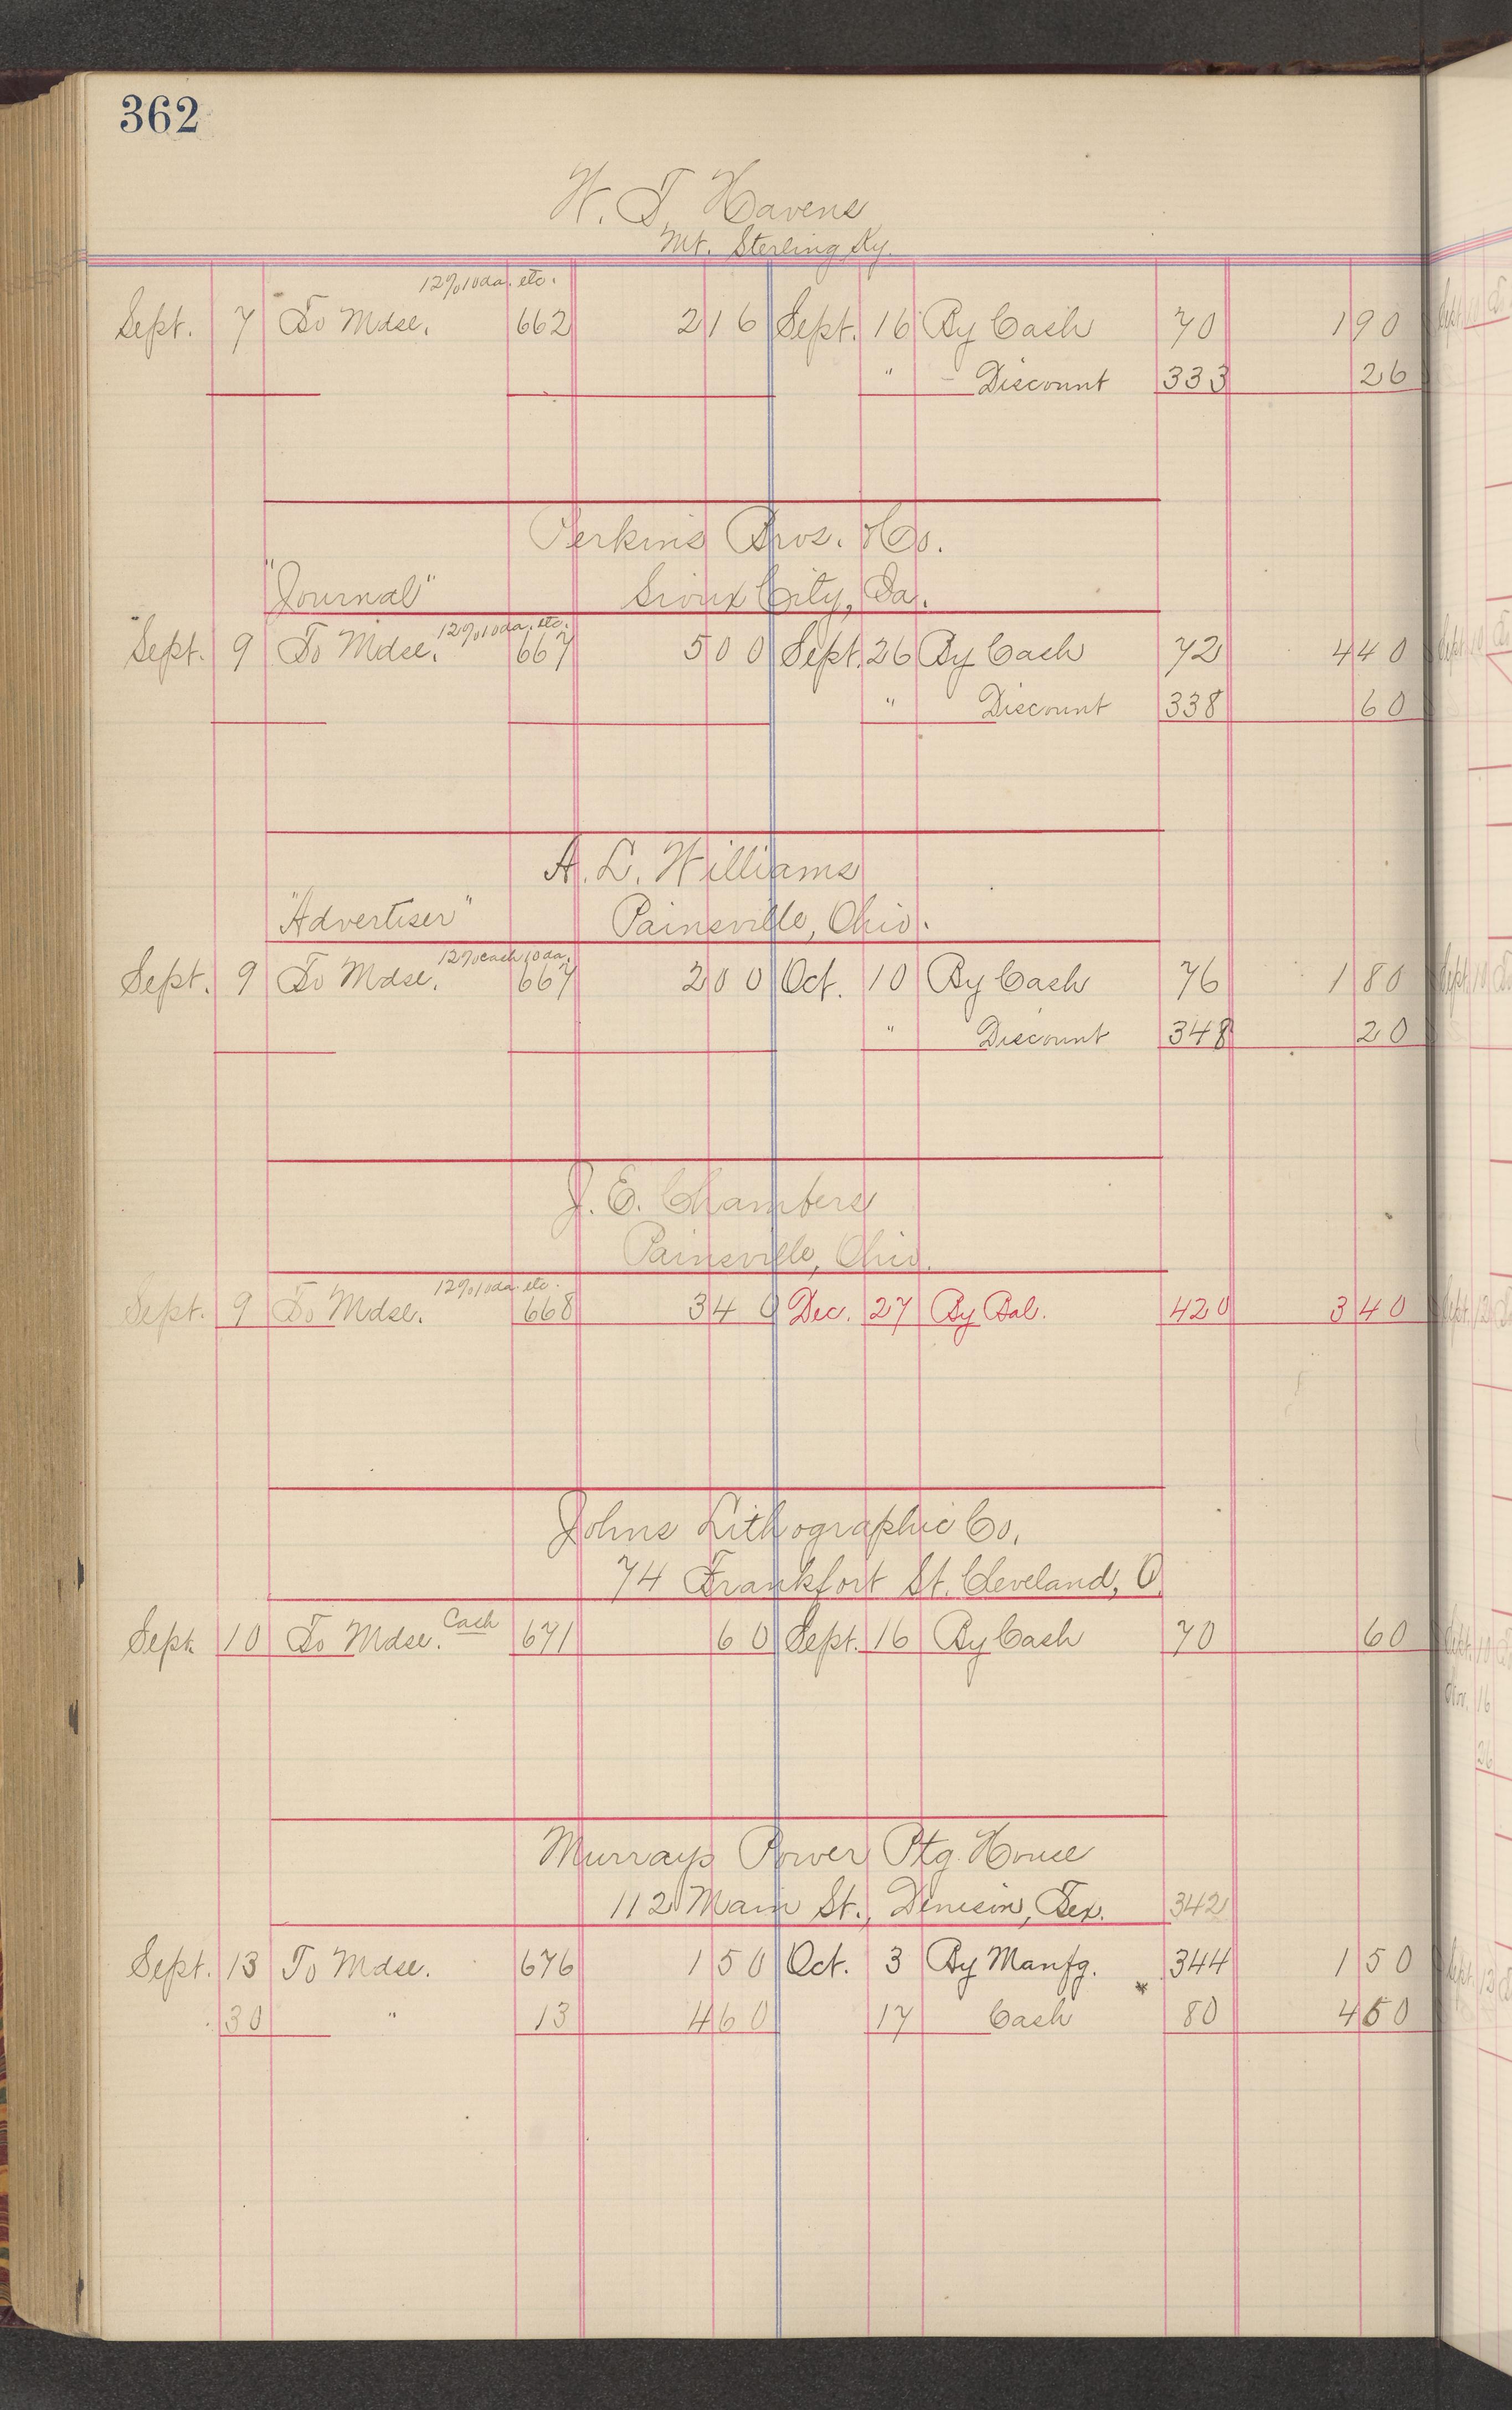 362
W. T. Havens
Mt. Sterling Ky.
12% 10 da. etc.
Sept. 7 To Mdse. 662 2 16 Sept. 16 By Cash 70 1 90
" Discount 333 26
Perkins Bros. Co.
"Journal" Sioux City, Ia.
12% 10 da. etc.
Sept. 9 To Mdse. 667 5 00 Sept. 26 By Cash 72 4 40
" Discount 338 60
A. L. Williams
"Advertiser" Painsville, Ohio.
12% cash 10 da.
Sept. 9 To Mdse. 667 2 00 Oct. 10 By Cash 76 1 80
" Discount 348 20
J. E. Chambers
Painsville, Ohio.
12% 10 da. etc.
Sept. 9 To Mdse. 668 3 40 Dec. 27 By Bal. 420 3 40
Johns Lithographic Co.
74 Frankfort St. Cleveland, O.
Sept. 10 To Mdse. Cash 671 60 Sept. 16 By Cash 70 60
Murrays Power Ptg. House
112 Main St., Denison, Tex. 342
Sept. 13 To Mdse. 676 1 50 Oct. 3 By Manfg. 344 1 50
30 " 13 4 60 17 Cash 80 4 60